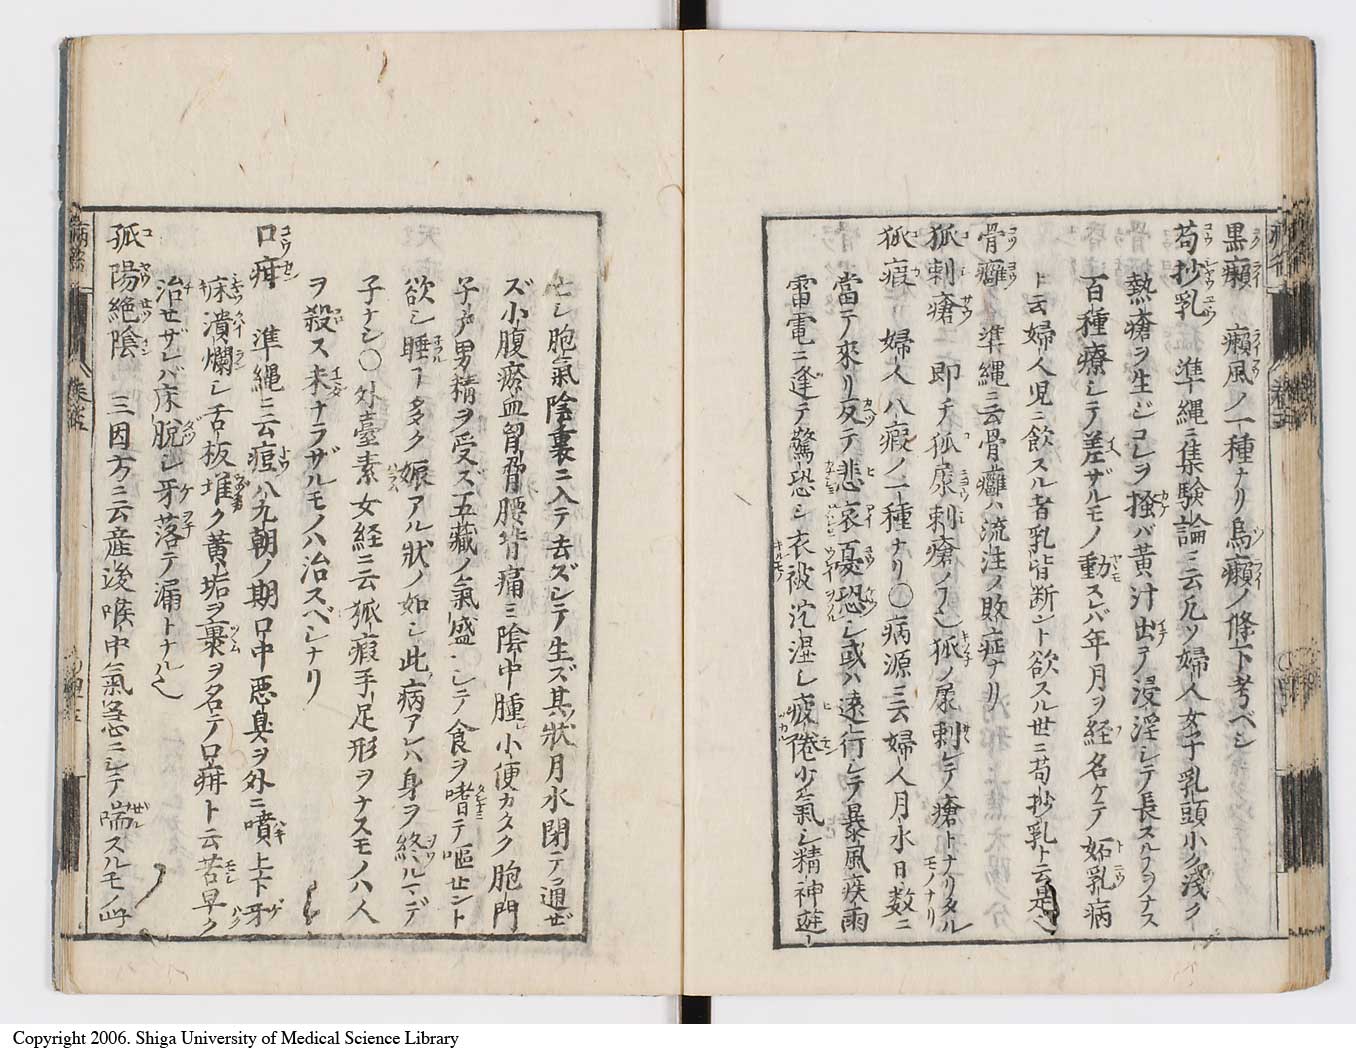 黒癩 癩風ノ一種ナリ烏癩ノ條下考ベシ
苟抄乳 準縄ニ集験論ニ云凡ソ婦人女子乳頭小ク浅ク
熱瘡ヲ生ジコレヲ搔バ黄汁出テ浸淫シテ長スルヿヲナス
百種療シテ差ザルモノ動スレバ年月ヲ経名ケテ妬乳病
ト云婦人児ニ飲スル者乳皆断ント欲スル世ニ苟抄乳ト云是也
骨癰 準縄ニ云骨癰ハ流注ノ敗症ナリ
狐刺瘡 即チ狐尿刺瘡ノヿ也狐ノ尿刺シテ瘡トナリタルモノナリ
狐瘕 婦人八瘕ノ一種ナリ〇病源ニ云婦人月水日数ニ
當テ來リ反テ悲哀憂恐シ或ハ遠行シテ暴風疾雨
雷電ニ逢テ驚恐シ衣被沉湿シ疲倦少氣シ精神遊
シ胞氣陰裏ニ入テ去ズシテ生ズ其狀月水閉テ通ぜ
ズ小腹瘀血胷脅腰背痛ミ陰中腫小便カタク胞門
子戸男精ヲ受ズ五藏ノ氣盛ンシテ食ヲ嗜テ嘔セント
欲シ睡ヿ多ク娠アル狀ノ如シ此病アレハ身ヲ終ルマデ
子ナシ〇外臺素女経ニ云狐瘕手足形ヲナスモノハ人
ヲ殺ス未ナラザルモノハ治スベシナリ
口疳 準縄ニ云痘八九朝ノ期口中悪臭ヲ外ニ噴上下牙
床潰爛シ舌板堆ク黄垢ヲ裹ヲ名テ口疳ト云若早ク
治せザレバ床脱シ牙落テ漏トナル也
孤陽絶陰 三因方ニ云産後喉中氣急ニシテ喘スルモノ此